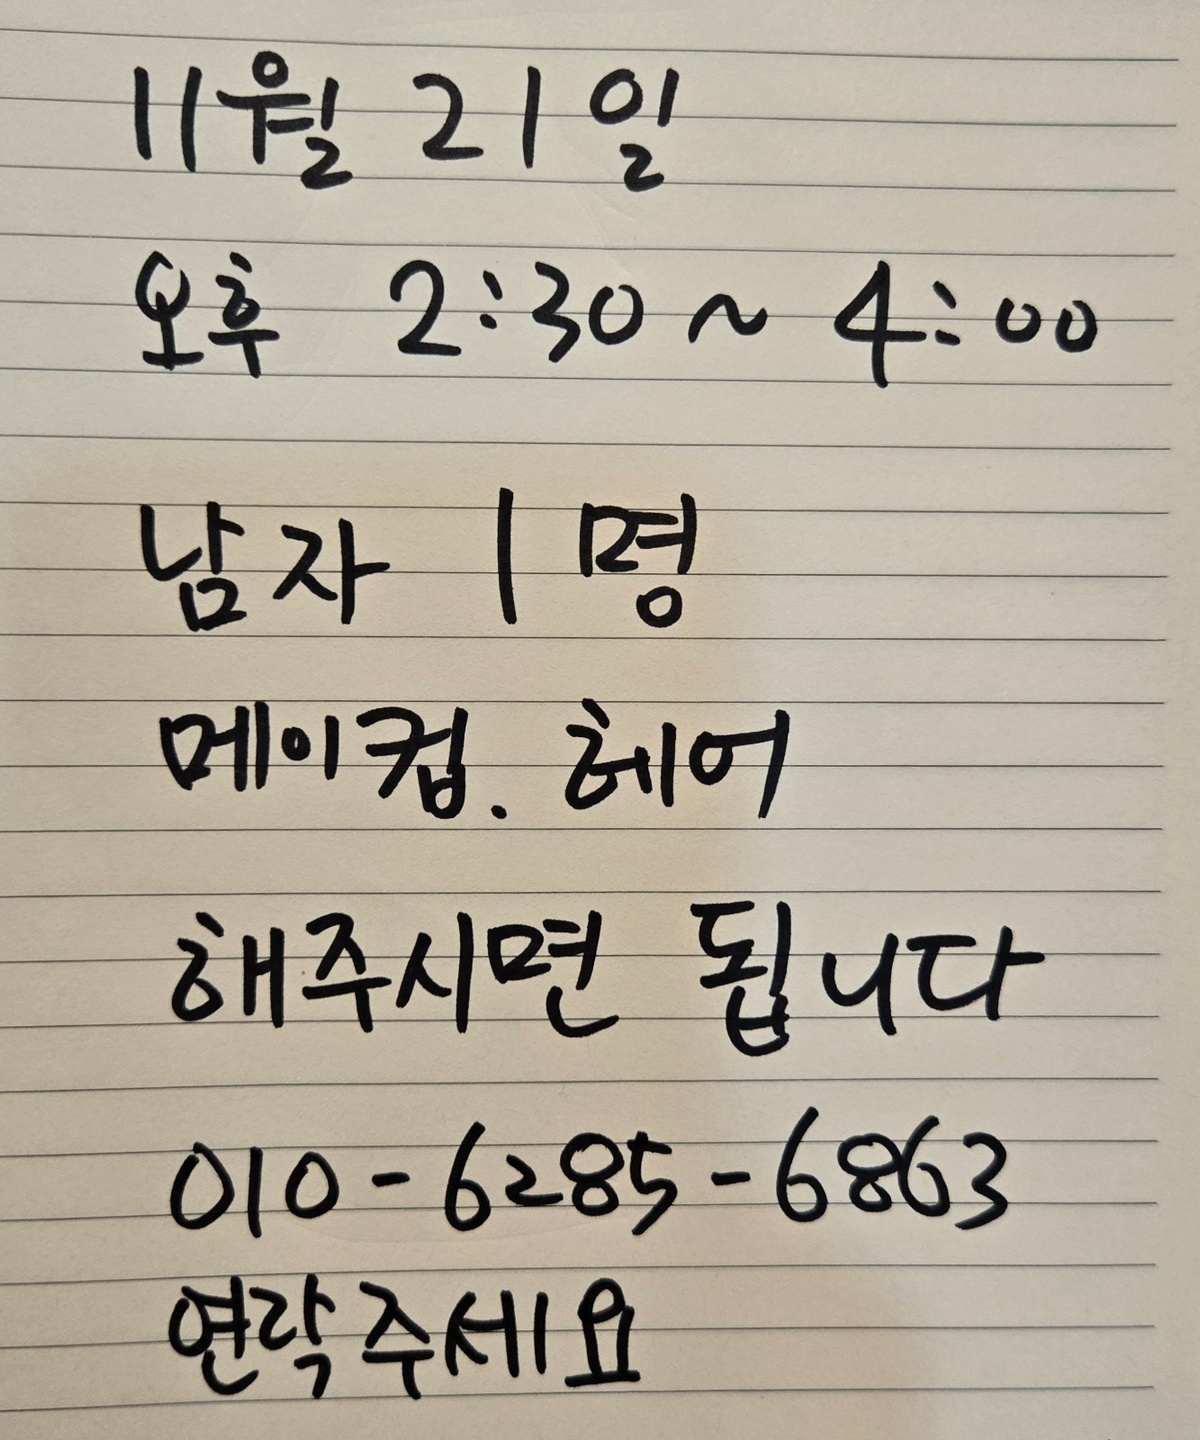 11월 21일
오후 2:30 ~ 4:00
남자 1명
메이컵. 헤어
해주시면 됩니다
010-6285-6863
연락주세요